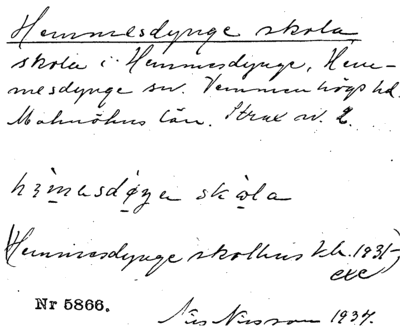 Hemmesdynge skola
skola i Hemmesdynge, Hem-
mesdynge sn. Vemmenhögs hd.
Malmöhus län. Strax
skola
(Hemmesdynge skolhus kk. 1931-)
exc
Nr 5866.
Nils Nilsson 1934.